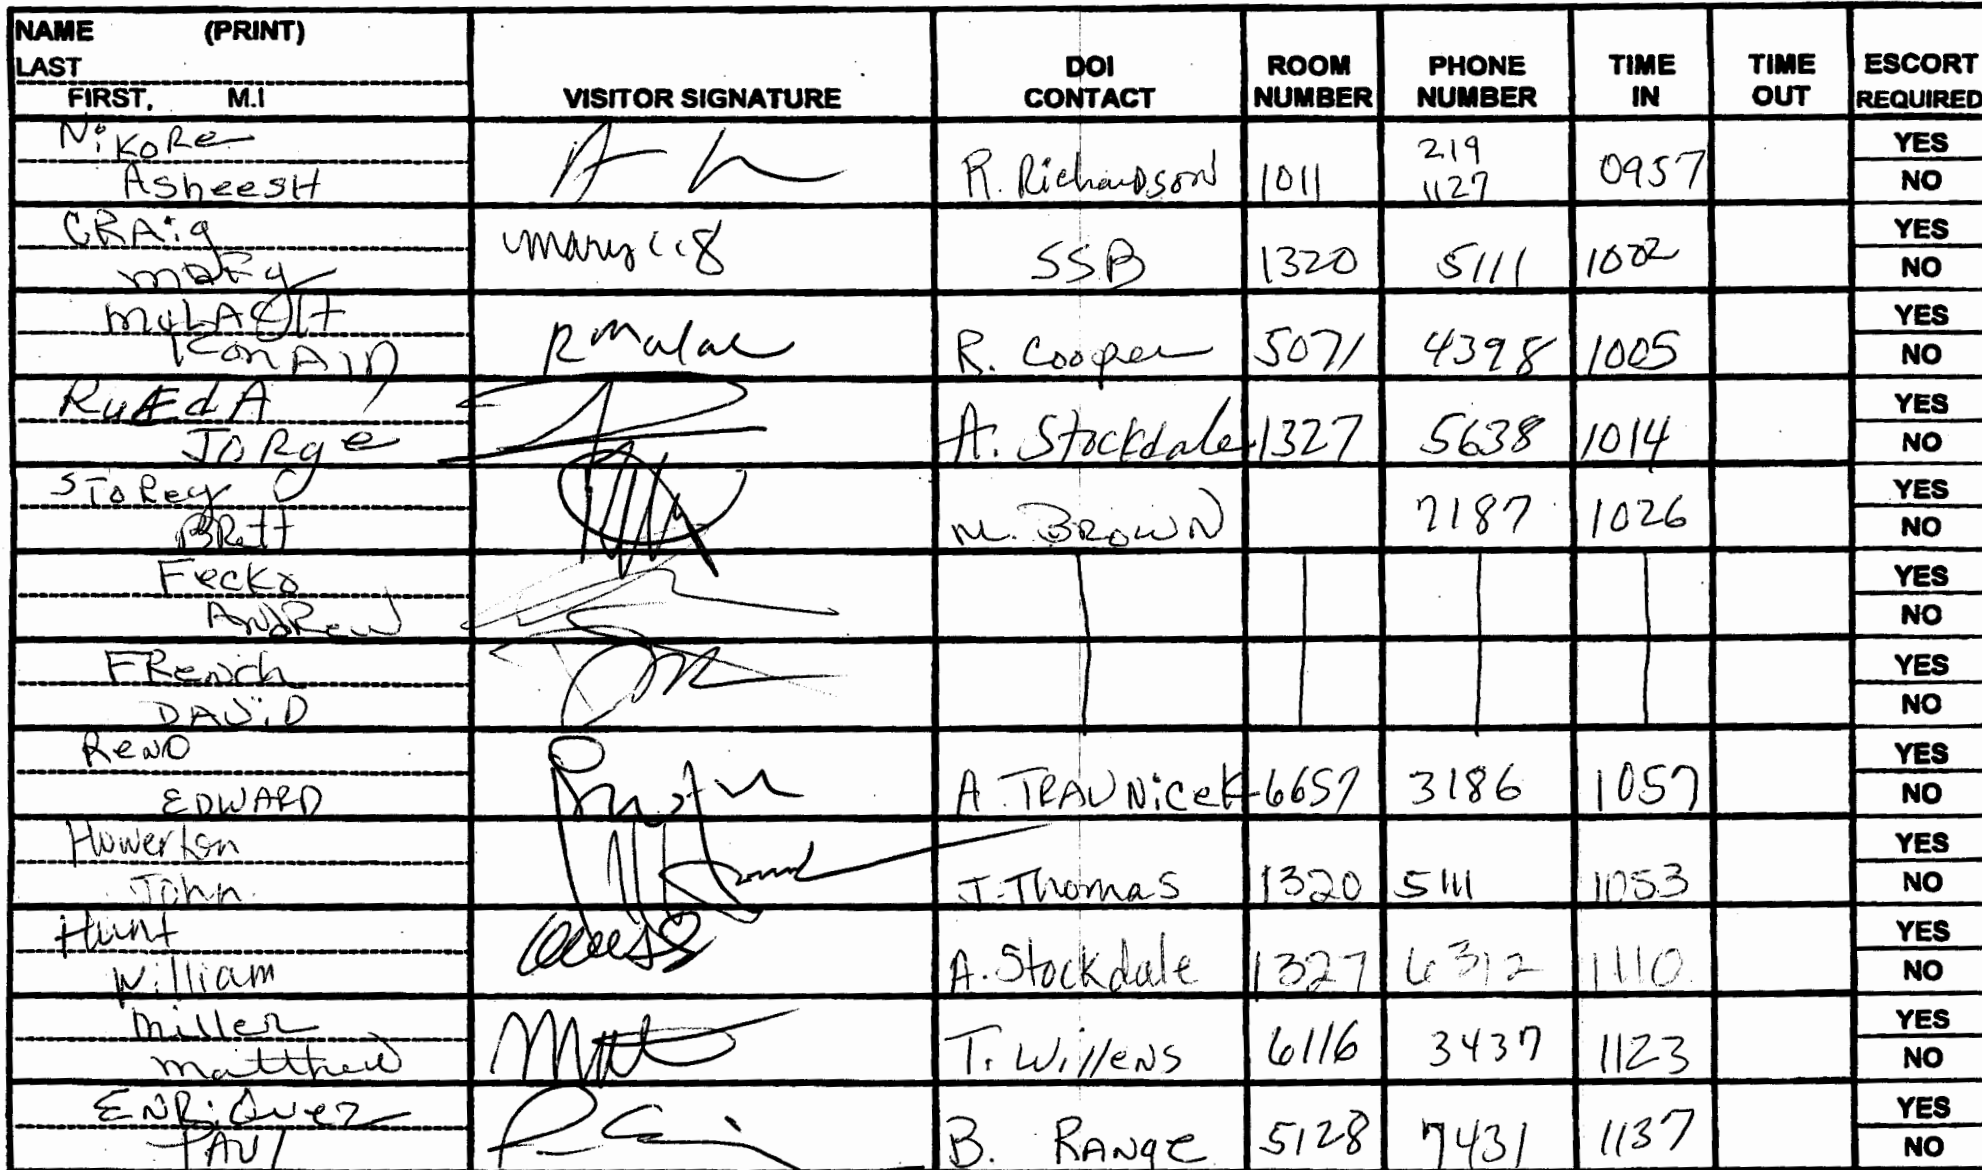 NAME (PRINT)
LAST
FIRST, M.I
VISITOR SIGNATURE
DOI CONTACT
ROOM NUMBER
PHONE NUMBER
TIME IN
TIME OUT
ESCORT REQUIRED
NiKoRe
AsheesH
R. Richardson 1011 219 1127 0957 YES NO
CRAig
mary
SSB 1320 5111 1002 YES NO
R. Cooper 5071 4398 1005 YES NO
RuEdA
JORge
A. Stockdale 1327 5638 1014 YES NO
SToRey
BRett
M. BROWN 7187 1026 YES NO
Fecko
ANDRew
YES NO
FRench
DAViD
YES NO
RenO
EDWARD
A. TRAVNiceK 6657 3186 1057 YES NO
Howerton
John
J. Thomas 1320 5111 1053 YES NO
Hunt
William
A. Stockdale 1327 6312 1110 YES NO
Miller
Matthew
T. Willens 6116 3437 1123 YES NO
ENRiQuez
PAUl
B. RANge 5128 7431 1137 YES NO